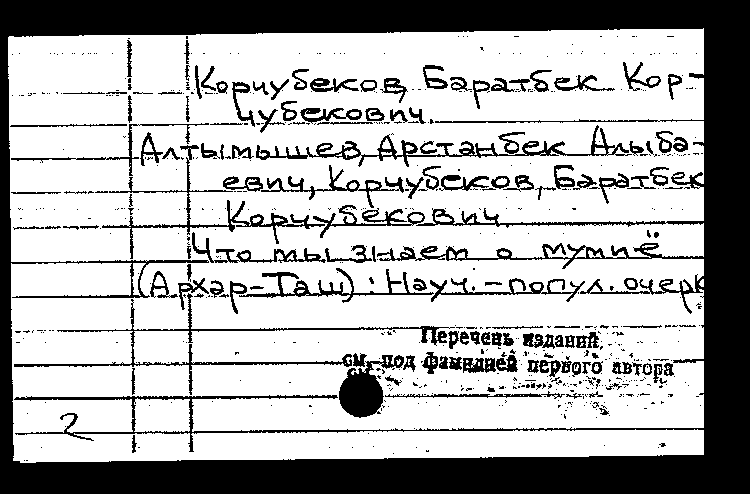 Корчубеков, Баратбек Кор-
чубекович.
Алтымышев, Арстанбек Алыба-
евич, Корчубеков, Баратбек
Корчубекович.
Что мы знаем о мумиё
(Архар-Таш) : Науч.-попул. очерк
Перечень изданий
см. под фамилией первого автора
2